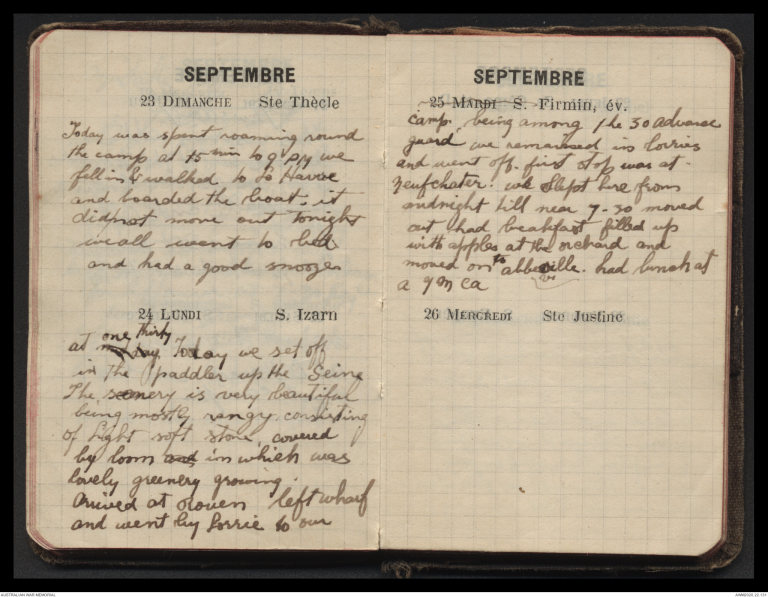 SEPTEMBRE
23 DIMANCHE Ste Thècle
Today was spent roaming round
the camp at 15 min to 9 pm we
fell in & walked to La Havre
and boarded the boat. it
did not move out tonight
we all went to bed
and had a good snooze
24 LUNDI S. Izarn
at one thirty
Today we set off
in the paddler up the Seine
The scenery is very beautiful
being mostly rangy consisting
of light soft stone, covered
by loom and in which was
lovely greenery growing.
Arrived at rouen left wharf
and went by Lorrie to our
SEPTEMBRE
25 MARDI S. Firmin, év.
camp, being among the 30 advance
guard we remained in lorries
and went off. first stop was at
Neufchater. we slept here from
midnight till near 7-30 moved
out had breakfast filled up
with apples at the orchard and
moved on to abbeville. had lunch at
a YMCA
26 MERCREDI Ste Justine
AUSTRALIAN WAR MEMORIAL